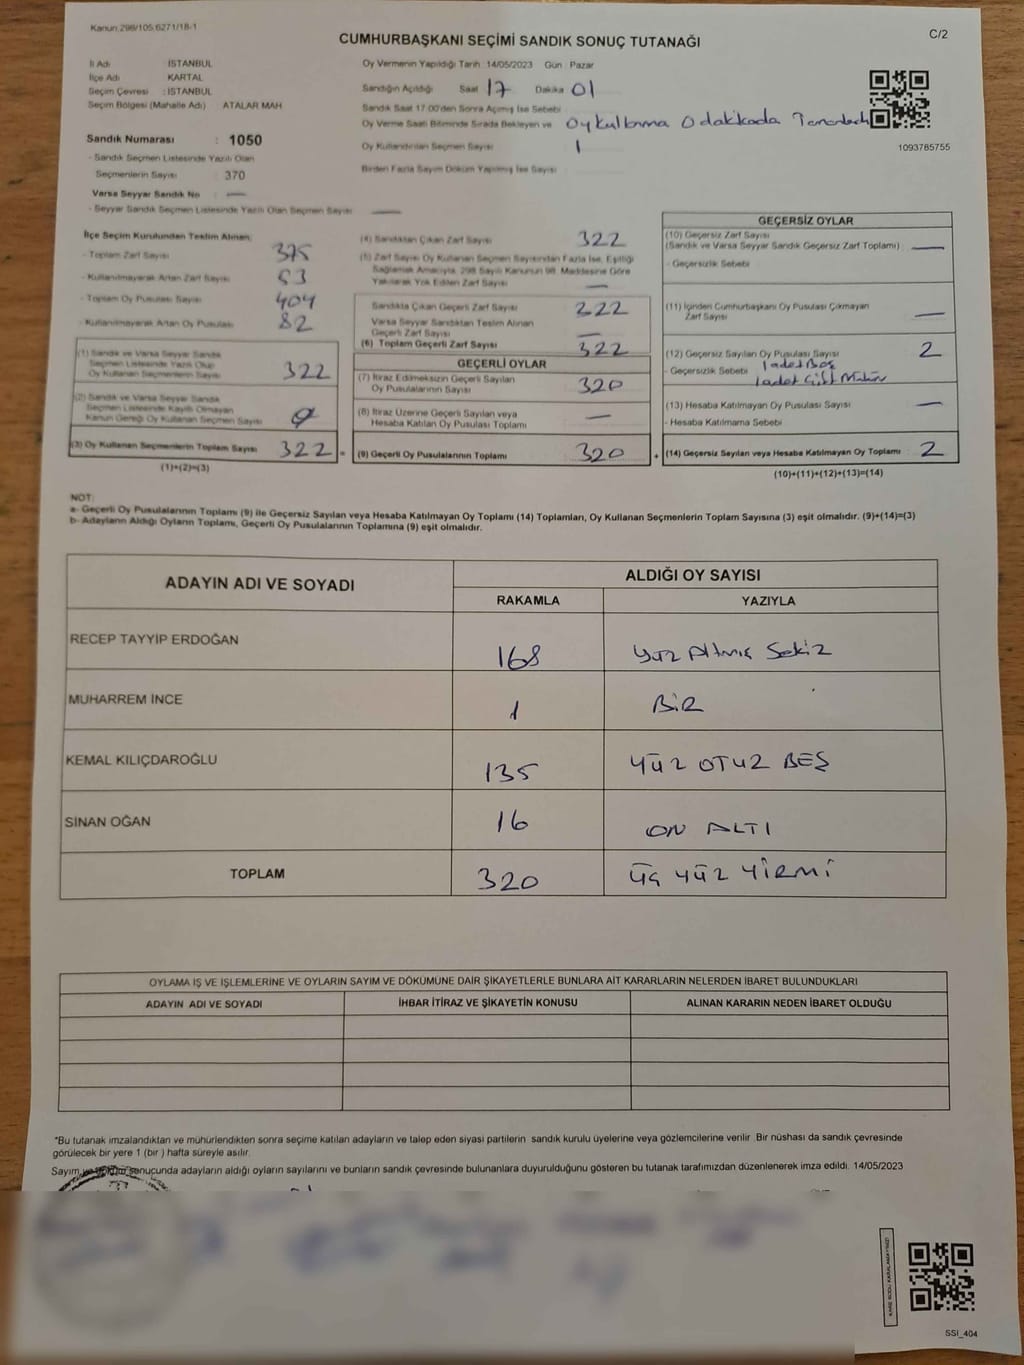 Kanun:298/105,6271/18-1
C/2
CUMHURBAŞKANI SEÇİMİ SANDIK SONUÇ TUTANAĞI
İl Adı İSTANBUL
İlçe Adı KARTAL
Seçim Çevresi : İSTANBUL
Seçim Bölgesi (Mahalle Adı) ATALAR MAH
Sandık Numarası : 1050
- Sandık Seçmen Listesinde Yazılı Olan
Seçmenlerin Sayısı : 370
Varsa Seyyar Sandık No : —
- Seyyar Sandık Seçmen Listesinde Yazılı Olan Seçmen Sayısı —
Oy Vermenin Yapıldığı Tarih : 14/05/2023 Gün : Pazar
Sandığın Açıldığı Saat 17 Dakika 01
Sandık Saat 17:00'den Sonra Açılmış İse Sebebi
Oy Verme Saati Bitiminde Sırada Bekleyen ve Oy kullanma 0 dakikada
Oy Kullandırılan Seçmen Sayısı 1
Birden Fazla Sayım Döküm Yapılmış İse Sayısı
1093785755
İlçe Seçim Kurulundan Teslim Alınan:
- Toplam Zarf Sayısı 375
- Kullanılmayarak Artan Zarf Sayısı 53
- Toplam Oy Pusulası Sayısı 404
- Kullanılmayarak Artan Oy Pusulası 82
(1) Sandık ve Varsa Seyyar Sandık
Seçmen Listesinde Yazılı Olup
Oy Kullanan Seçmenlerin Sayısı 322
(2) Sandık ve Varsa Seyyar Sandık
Seçmen Listesinde Kayıtlı Olmayan
Kanun Gereği Oy Kullanan Seçmen Sayısı 0
(3) Oy Kullanan Seçmenlerin Toplam Sayısı 322 =
(1)+(2)=(3)
(4) Sandıktan Çıkan Zarf Sayısı 322
(5) Zarf Sayısı Oy Kullanan Seçmen Sayısından Fazla İse, Eşitliği
Sağlamak Amacıyla, 298 Sayılı Kanunun 98. Maddesine Göre
Yakılarak Yok Edilen Zarf Sayısı —
Sandıkta Çıkan Geçerli Zarf Sayısı 322
Varsa Seyyar Sandıktan Teslim Alınan
Geçerli Zarf Sayısı —
(6) Toplam Geçerli Zarf Sayısı 322
GEÇERLİ OYLAR
(7) İtiraz Edilmeksizin Geçerli Sayılan
Oy Pusulalarının Sayısı 320
(8) İtiraz Üzerine Geçerli Sayılan veya
Hesaba Katılan Oy Pusulaları Toplamı —
(9) Geçerli Oy Pusulalarının Toplamı 320 +
GEÇERSİZ OYLAR
(10) Geçersiz Zarf Sayısı
(Sandık ve Varsa Seyyar Sandık Geçersiz Zarf Toplamı) : —
- Geçersizlik Sebebi
(11) İçinden Cumhurbaşkanı Oy Pusulası Çıkmayan
Zarf Sayısı —
(12) Geçersiz Sayılan Oy Pusulası Sayısı 2
- Geçersizlik Sebebi 1 adet Boş
1 adet Çift Mühür
(13) Hesaba Katılmayan Oy Pusulası Sayısı —
- Hesaba Katılmama Sebebi
(14) Geçersiz Sayılan veya Hesaba Katılmayan Oy Toplamı : 2
(10)+(11)+(12)+(13)=(14)
NOT:
a- Geçerli Oy Pusulalarının Toplamı (9) ile Geçersiz Sayılan veya Hesaba Katılmayan Oy Toplamı (14) Toplamları, Oy Kullanan Seçmenlerin Toplam Sayısına (3) eşit olmalıdır. (9)+(14)=(3)
b- Adayların Aldığı Oyların Toplamı, Geçerli Oy Pusulalarının Toplamına (9) eşit olmalıdır.
ADAYIN ADI VE SOYADI
ALDIĞI OY SAYISI
RAKAMLA YAZIYLA
RECEP TAYYİP ERDOĞAN 168 yüz Altmış Sekiz
MUHARREM İNCE 1 BİR
KEMAL KILIÇDAROĞLU 135 YÜZ OTUZ BEŞ
SİNAN OĞAN 16 ON ALTI
TOPLAM 320 ÜÇ YÜZ YİRMİ
OYLAMA İŞ VE İŞLEMLERİNE VE OYLARIN SAYIM VE DÖKÜMÜNE DAİR ŞİKAYETLERLE BUNLARA AİT KARARLARIN NELERDEN İBARET BULUNDUKLARI
ADAYIN ADI VE SOYADI İHBAR İTİRAZ VE ŞİKAYETİN KONUSU ALINAN KARARIN NEDEN İBARET OLDUĞU
*Bu tutanak imzalandıktan ve mühürlendikten sonra seçime katılan adayların ve talep eden siyasi partilerin sandık kurulu üyelerine veya gözlemcilerine verilir. Bir nüshası da sandık çevresinde
görülecek bir yere 1 (bir ) hafta süreyle asılır.
Sayım sonucunda adayların aldığı oyların sayılarını ve bunların sandık çevresinde bulunanlara duyurulduğunu gösteren bu tutanak tarafımızdan düzenlenerek imza edildi. 14/05/2023
KARE KODU KARALAMAYINIZ!
SSI_404